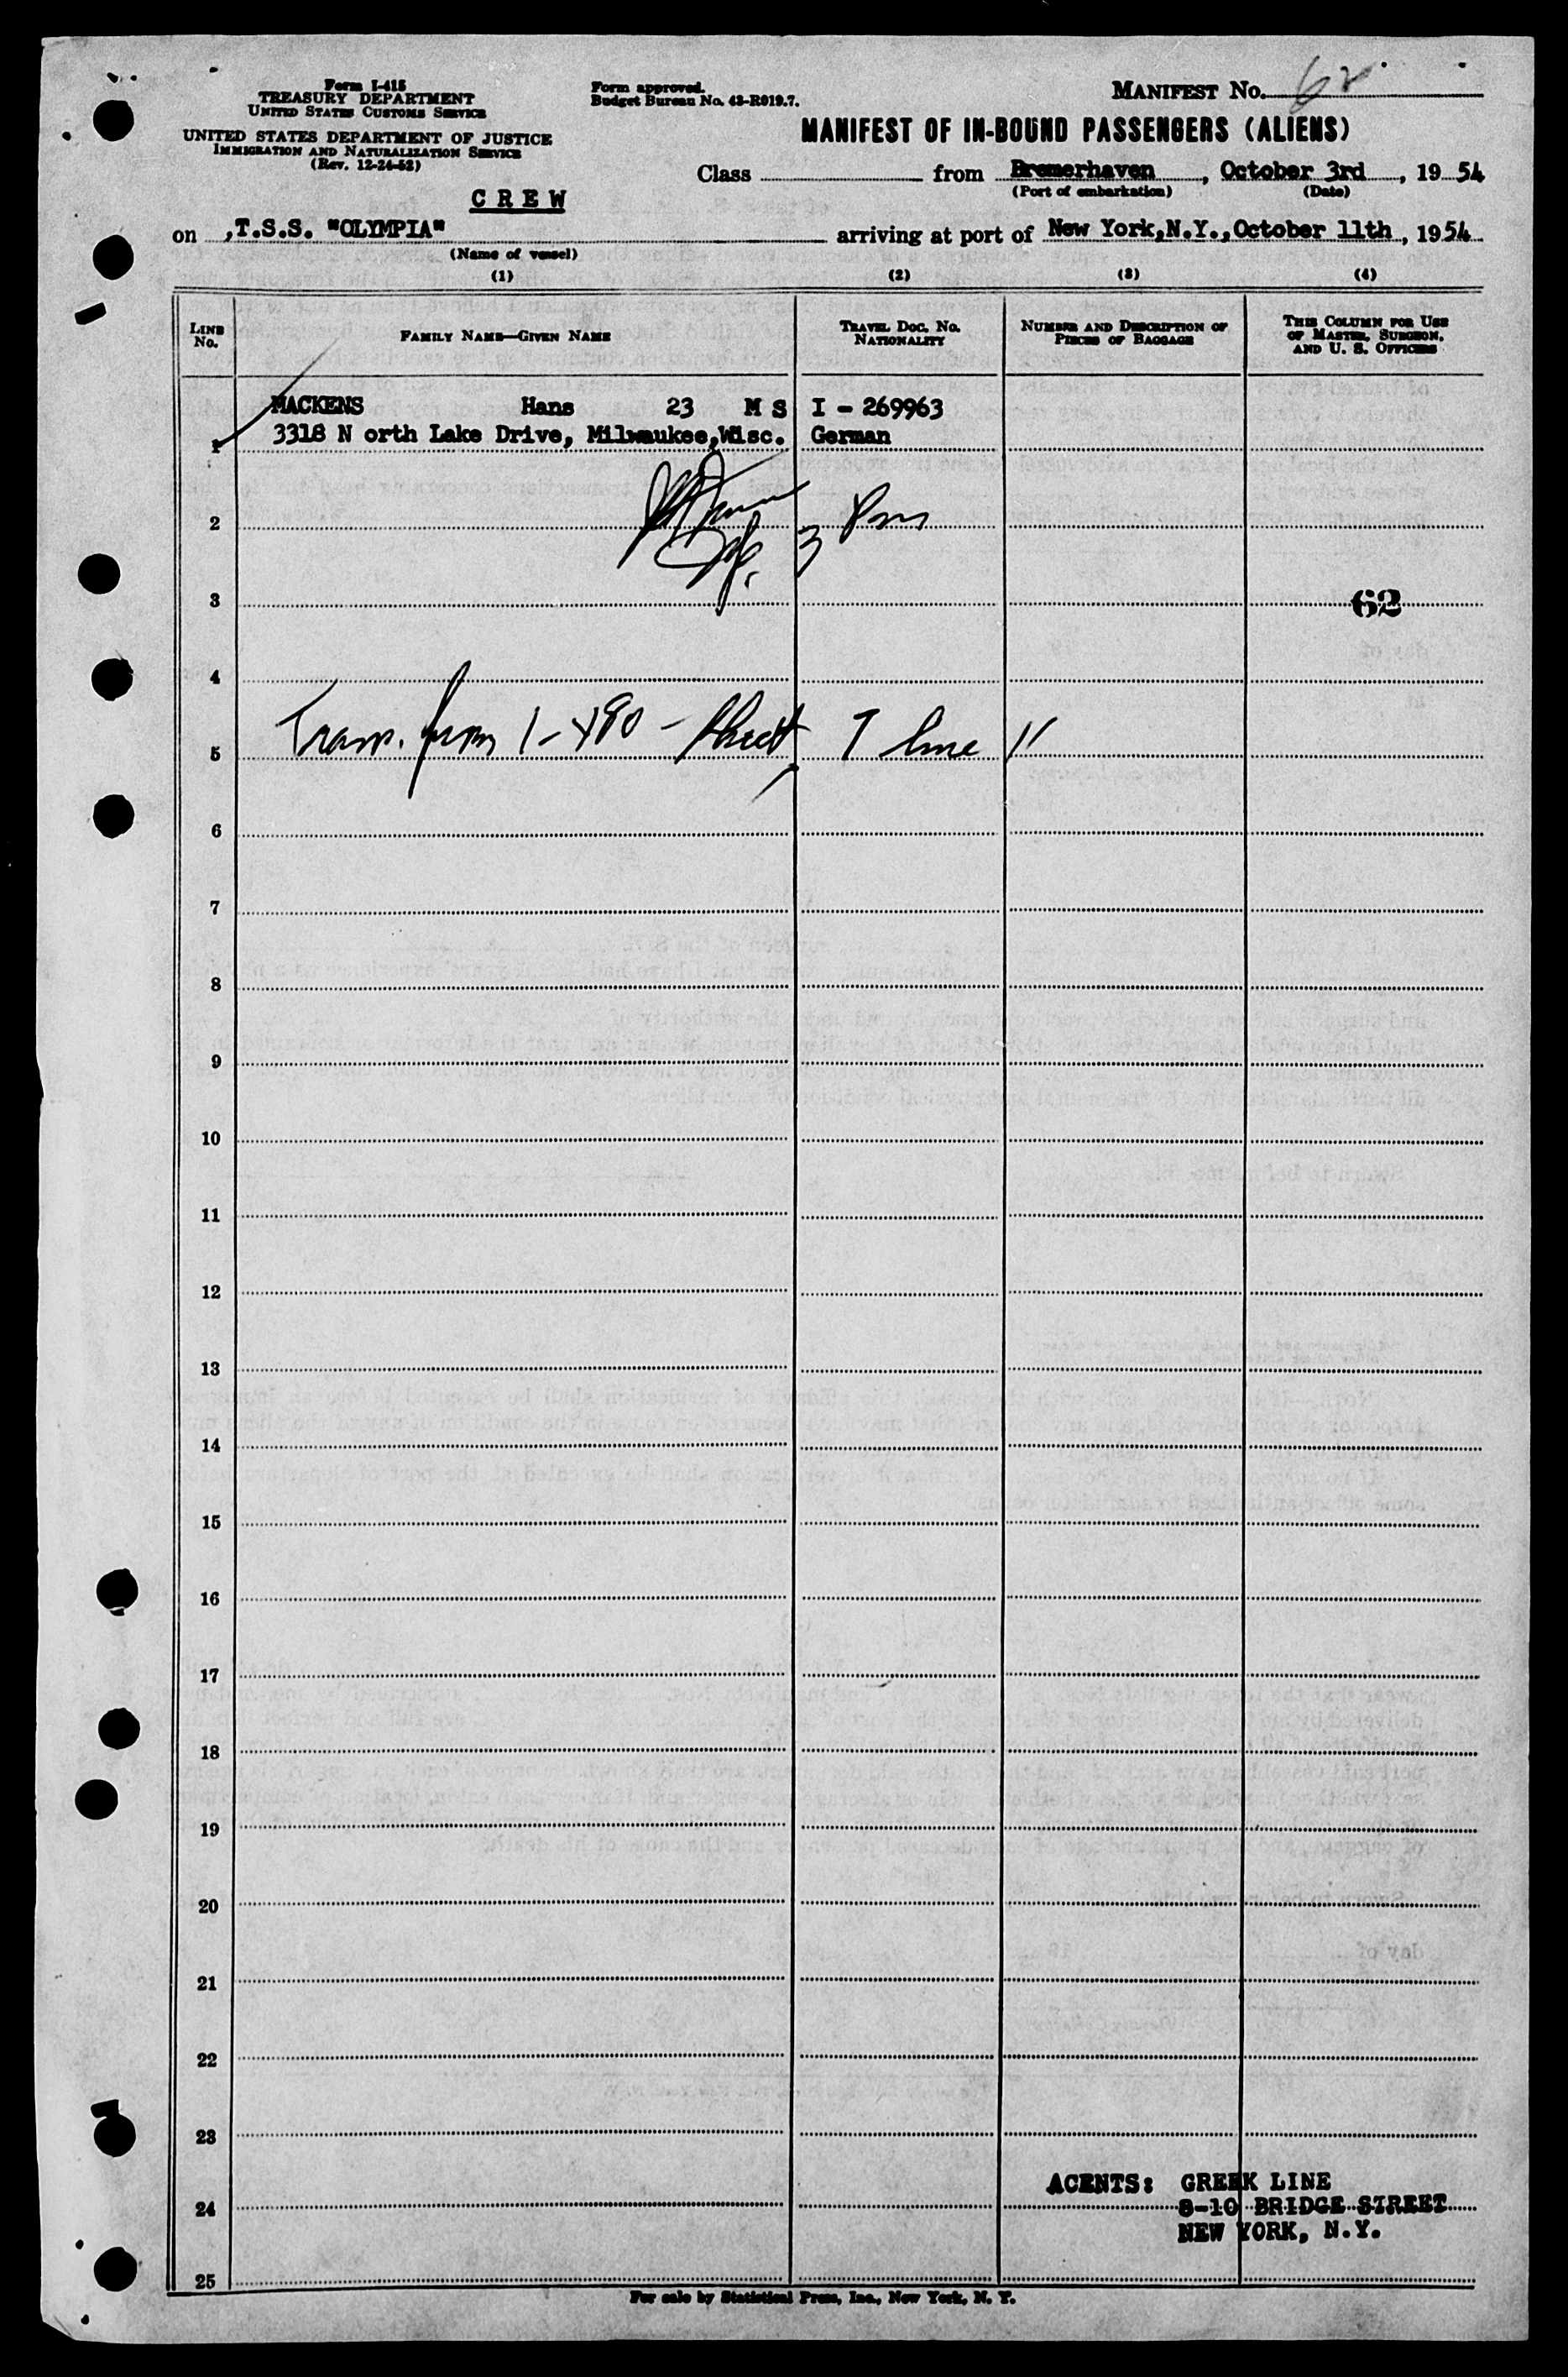 Form I-415
TREASURY DEPARTMENT
UNITED STATES CUSTOMS SERVICE
UNITED STATES DEPARTMENT OF JUSTICE
IMMIGRATION AND NATURALIZATION SERVICE
(Rev. 12-24-52)
Form approved.
Budget Bureau No. 43-R019.7.
MANIFEST No. 62
MANIFEST OF IN-BOUND PASSENGERS (ALIENS)
Class from Bremerhaven, October 3rd, 1954
(Port of embarkation) (Date)
CREW
on ,T.S.S. "OLYMPIA" arriving at port of New York,N.Y.,October 11th, 1954
(Name of vessel)
(1) (2) (3) (4)
LINE No. FAMILY NAME—GIVEN NAME TRAVEL DOC. NO. NATIONALITY NUMBER AND DESCRIPTION OF PIECES OF BAGGAGE THIS COLUMN FOR USE OF MASTER, SURGEON, AND U. S. OFFICERS
MACKENS Hans 23 M S I - 269963
1 3318 N orth Lake Drive, Milwaukee,Wisc. German
2
3 62
4
5 Trans. from I-480 - Sheet 7 line 11
6
7
8
9
10
11
12
13
14
15
16
17
18
19
20
21
22
23
AGENTS: GREEK LINE
24 8-10 BRIDGE STREET
NEW YORK, N.Y.
25
For sale by Statistical Press, Inc., New York, N. Y.